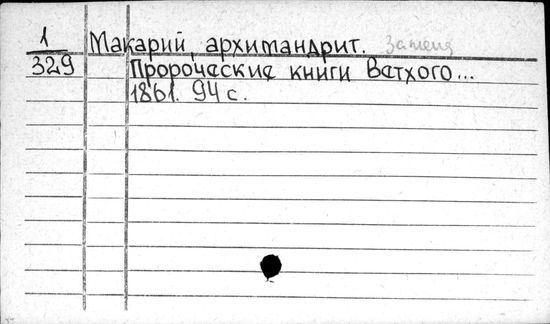 1 Макарий, архимандрит. Замена
329 Пророческие книги Ветхого...
1861. 94 с.